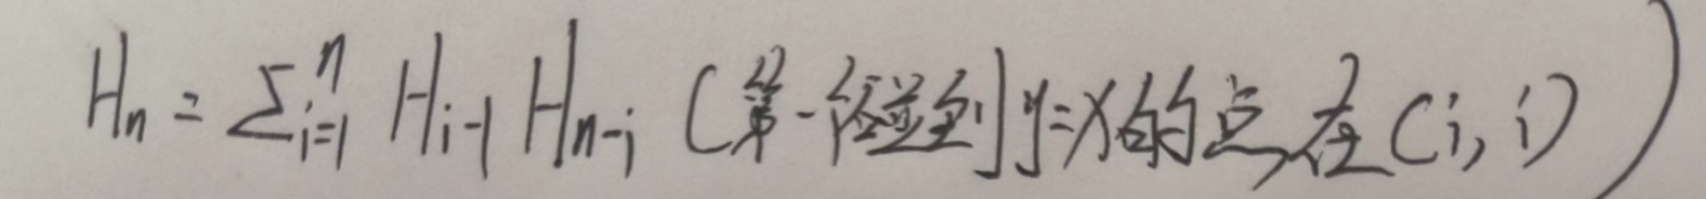 Hn = ∑_{i=1}^{n} H_{i-1} H_{n-i} (第一个碰到y=x的点在(i, i))